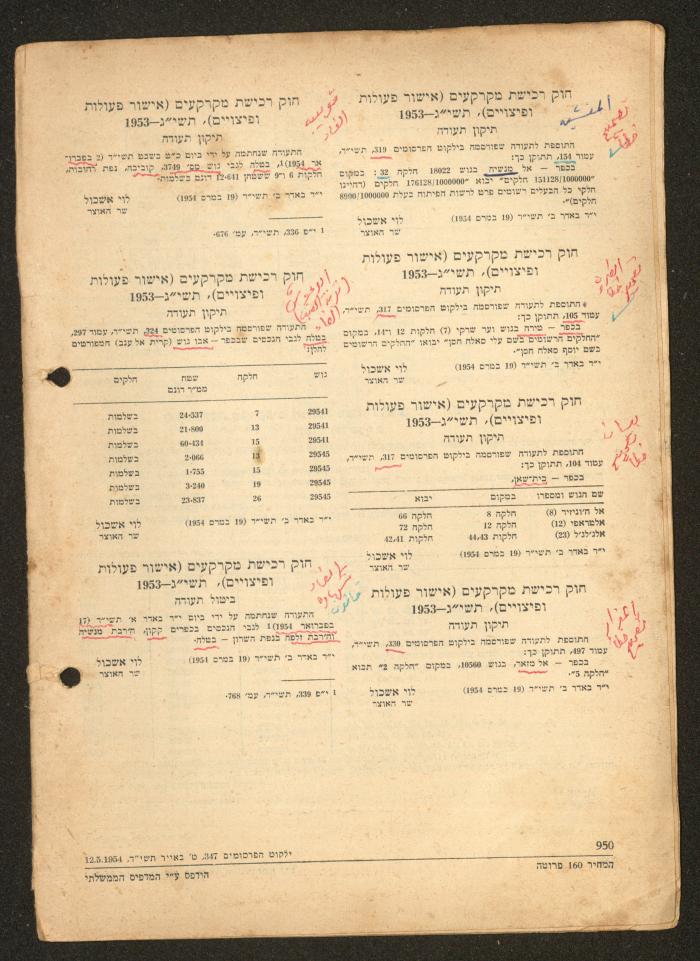 חוק רכישת מקרקעים (אישור פעולות
ופיצויים), תשי״ג—1953
תיקון תעודה
התוספת לתעודה שפורסמה בילקוט הפרסומים 319, תשי״ד,
עמוד 154, תתוקן כך:
בכפר — אל מנשיה בגוש 18022 חלקה 32 : במקום
״151128/1000000 חלקים״ יבוא ״176128/1000000 חלקים (דהיינו
חלקי כל הבעלים רשומים פרט לרשות הפיתוח בעלת 8990/1000000
חלקים)״.
י״ד באדר ב׳ תשי״ד (19 במרס 1954)
לוי אשכול
שר האוצר
חוק רכישת מקרקעים (אישור פעולות
ופיצויים), תשי״ג—1953
תיקון תעודה
התוספת לתעודה שפורסמה בילקוט הפרסומים 317, תשי״ד,
עמוד 105, תתוקן כך:
בכפר — טירה בגוש וער שרקי (7) חלקות 12 ו־14, במקום
״החלקים הרשומים בשם עלי סאלח חסן״ יבואו ״החלקים הרשומים
בשם יוסף סאלח חסן״.
י״ד באדר ב׳ תשי״ד (19 במרס 1954)
לוי אשכול
שר האוצר
חוק רכישת מקרקעים (אישור פעולות
ופיצויים), תשי״ג—1953
תיקון תעודה
התוספת לתעודה שפורסמה בילקוט הפרסומים 317, תשי״ד,
עמוד 104, תתוקן כך:
בכפר — בית־שאן,
שם הגוש ומספרו במקום יבוא
אל ח׳וניזיר (8) חלקה 8 חלקה 66
אלטראפי (12) חלקה 12 חלקה 72
אלג׳לג׳ל (23) חלקות 44,43 חלקות 42,41
י״ד באדר ב׳ תשי״ד (19 במרס 1954)
לוי אשכול
שר האוצר
חוק רכישת מקרקעים (אישור פעולות
ופיצויים), תשי״ג—1953
תיקון תעודה
התוספת לתעודה שפורסמה בילקוט הפרסומים 330, תשי״ד,
עמוד 497, תתוקן כך:
בכפר — אל מזאר, בגוש 10560, במקום ״חלקה 2״ תבוא
״חלקה 5״.
י״ד באדר ב׳ תשי״ד (19 במרס 1954)
לוי אשכול
שר האוצר
חוק רכישת מקרקעים (אישור פעולות
ופיצויים), תשי״ג—1953
תיקון תעודה
התעודה שנחתמה על ידי ביום כ״ט בשבט תשי״ד (2 בפברו־
אר 1954)1, בטלה לגבי גוש מס׳ 3749, קוביבה, נפת רחובות,
חלקות 6 ו־9 ששטחן 12.641 דונם בשלמות.
י״ד באדר ב׳ תשי״ד (19 במרס 1954)
לוי אשכול
שר האוצר
1 י״פ 336, תשי״ד, עמ׳ 676.
חוק רכישת מקרקעים (אישור פעולות
ופיצויים), תשי״ג—1953
תיקון תעודה
התעודה שפורסמה בילקוט הפרסומים 324, תשי״ד, עמוד 297,
בטלה לגבי הנכסים שבכפר — אבו גוש (קרית אל ענב) המפורטים
להלן:
גוש חלקה שטח חלקים
מטר דונם
29541 7 24.537 בשלמות
29541 13 21.800 בשלמות
29541 15 60.434 בשלמות
29545 13 2.066 בשלמות
29545 15 1.755 בשלמות
29545 19 3.240 בשלמות
29545 26 23.837 בשלמות
י״ד באדר ב׳ תשי״ד (19 במרס 1954)
לוי אשכול
שר האוצר
חוק רכישת מקרקעים (אישור פעולות
ופיצויים), תשי״ג—1953
ביטול תעודה
התעודה שנחתמה על ידי ביום י״ד באדר א׳ תשי״ד (17
בפברואר 1954)1 לגבי הנכסים בכפרים קקון, ח׳רבת מנשיה
וח׳רבת זלפה בנפת השרון — בטלה.
י״ד באדר ב׳ תשי״ד (19 במרס 1954)
לוי אשכול
שר האוצר
1 י״פ 339, תשי״ד, עמ׳ 768.
950
ילקוט הפרסומים 347, ט׳ באייר תשי״ד, 12.5.1954
המחיר 160 פרוטה
הודפס ע״י המדפיס הממשלתי